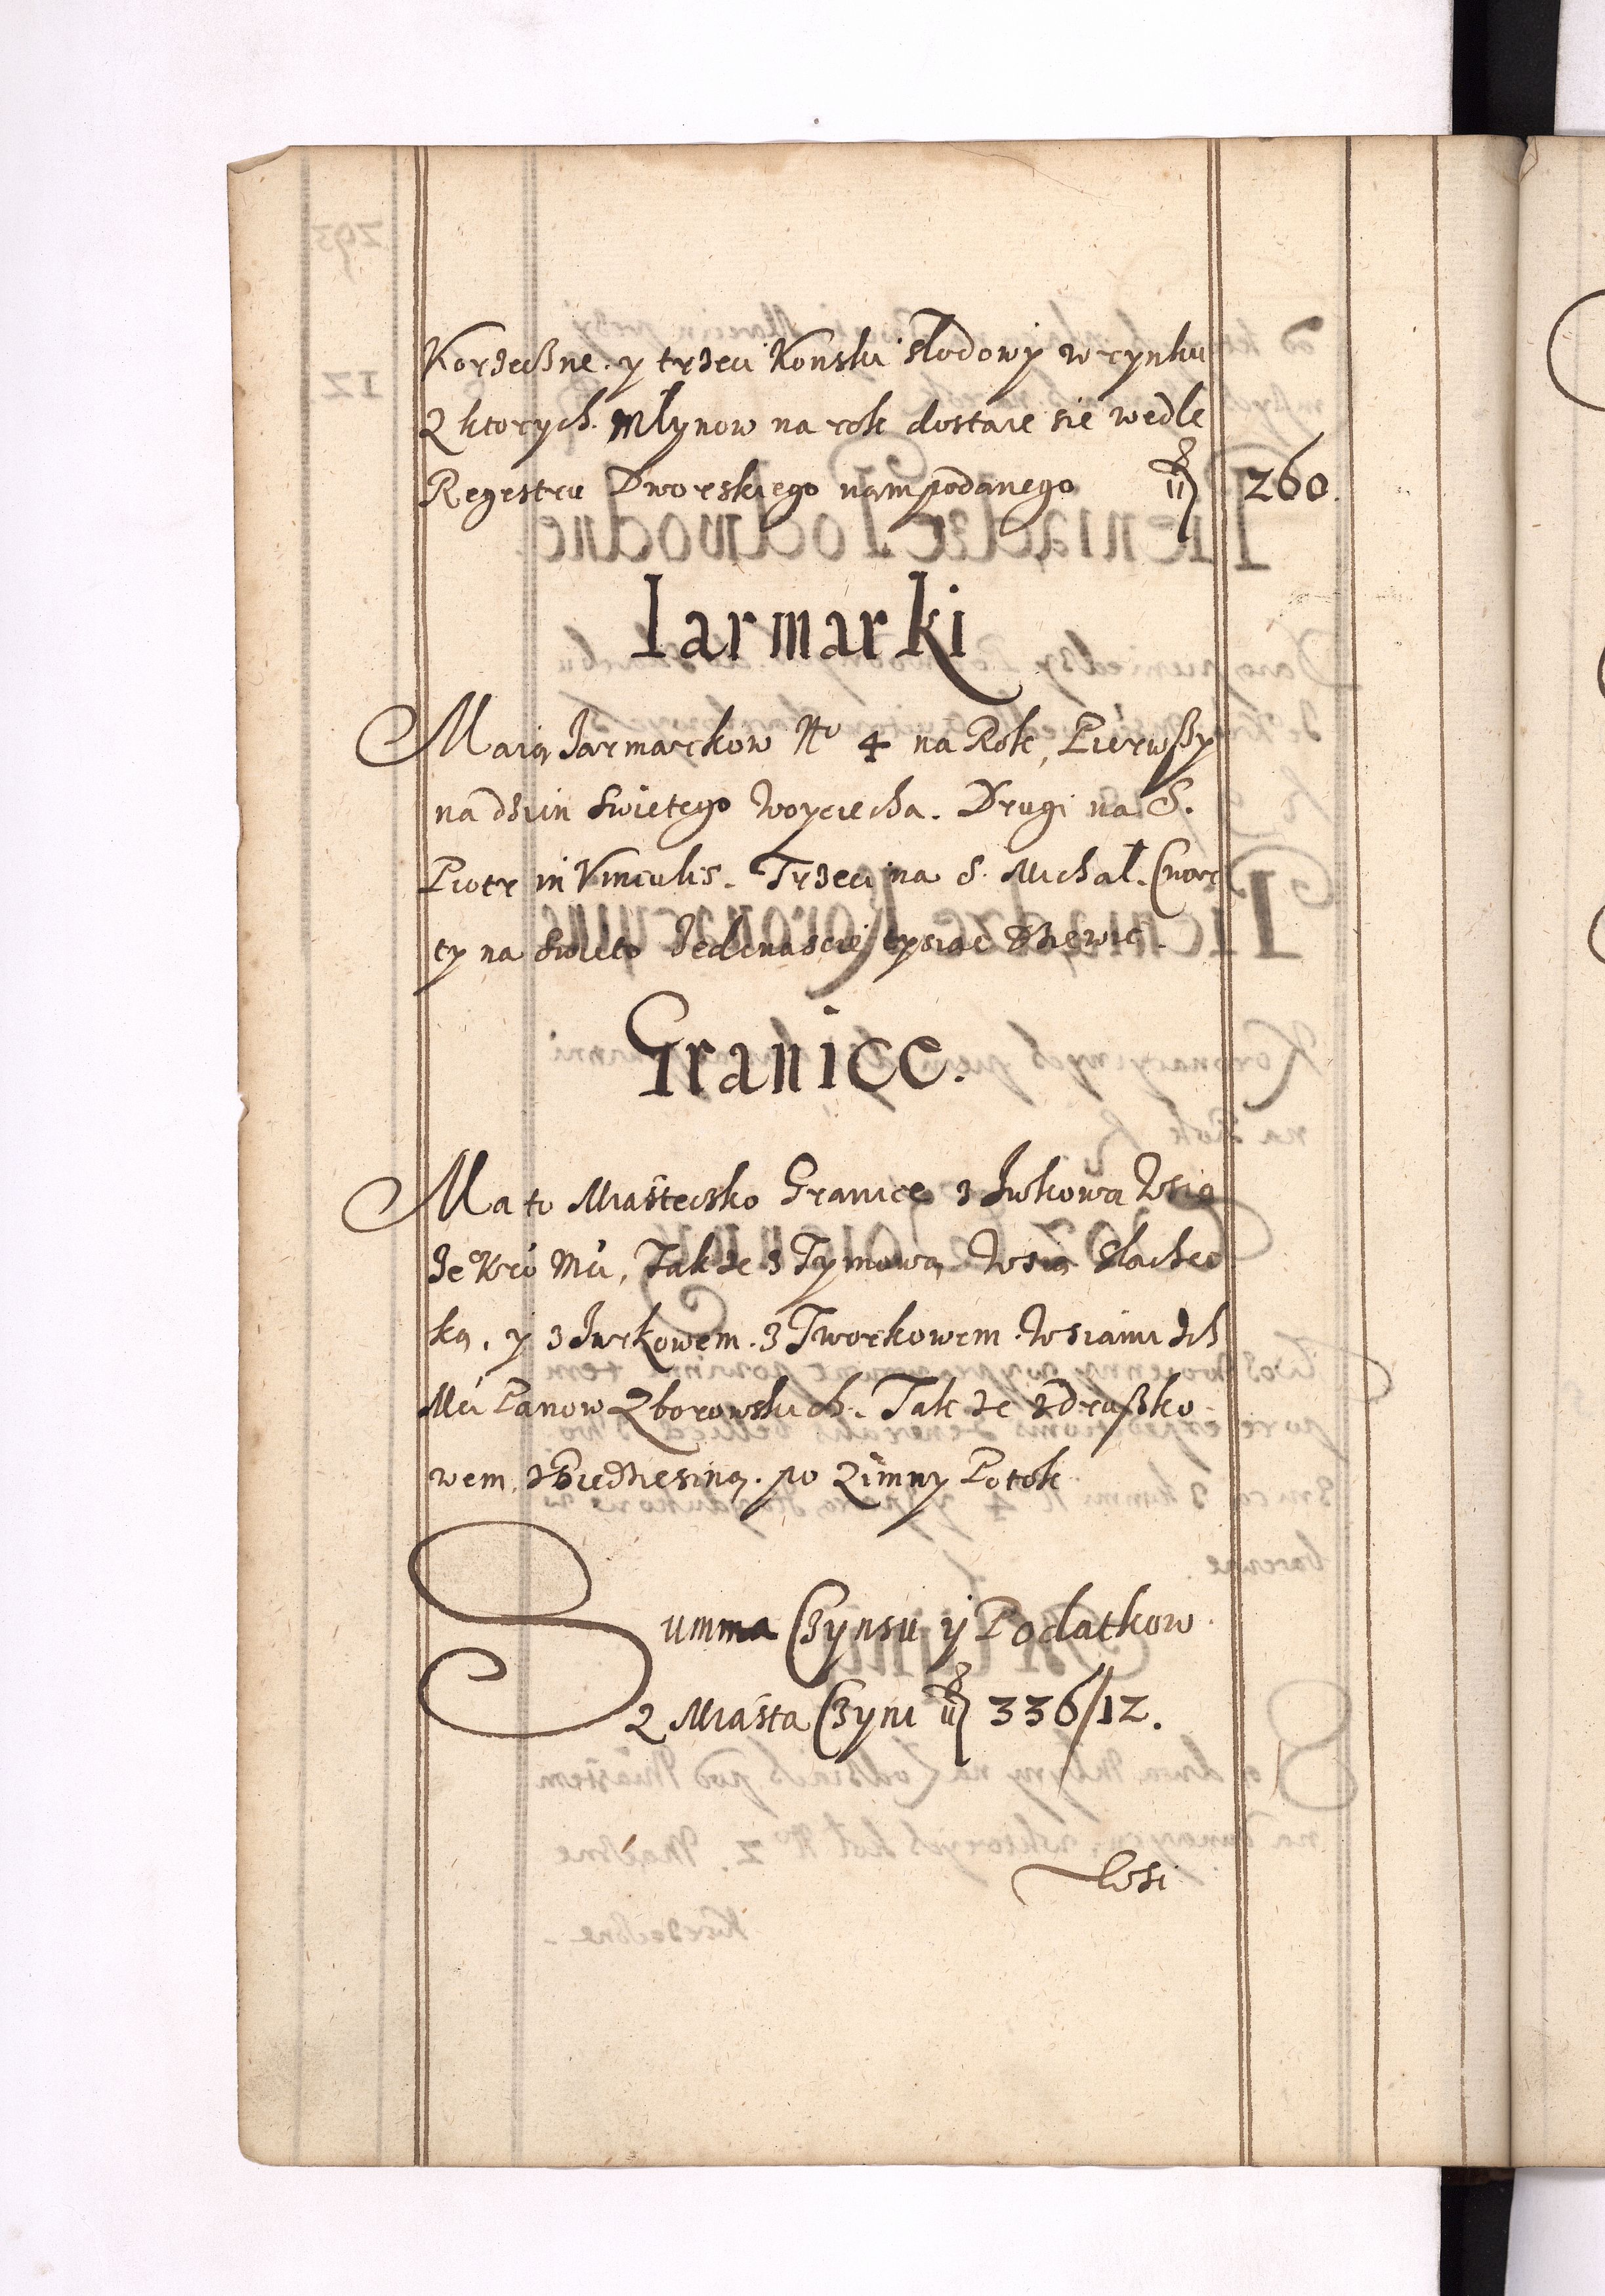 Korzeczne. y trzeci Konski słodowy w rynku
Z ktorych Młynow na rok dostaie sie wedle
Regestru Dworskiego nam podanego 260.
Iarmarki
Maią Jarmarkow No 4 na Rok, Pierwszy
na dzien Swietego Woyciecha. Drugi na S.
Piotr in Vinculis. Trzeci na S. Michał. Czwar
ty na Swieto Jedenascie tysiac Dziewic.
Granice.
Ma to Miasteczko Granice z Jwkową Wsią
Je Kro Mci, Takze z Tymową Wsią Slachec
ką. y z Jurkowem. z Tworkowem. Wsiami Ich
Mci Panow Zborowskich. Tak ze z Druszko
wem, z Biedziesiną. po Zimny Potok
Summa Czynsu y Podatkow
Z Miasta Czyni 336/12.
Wsi